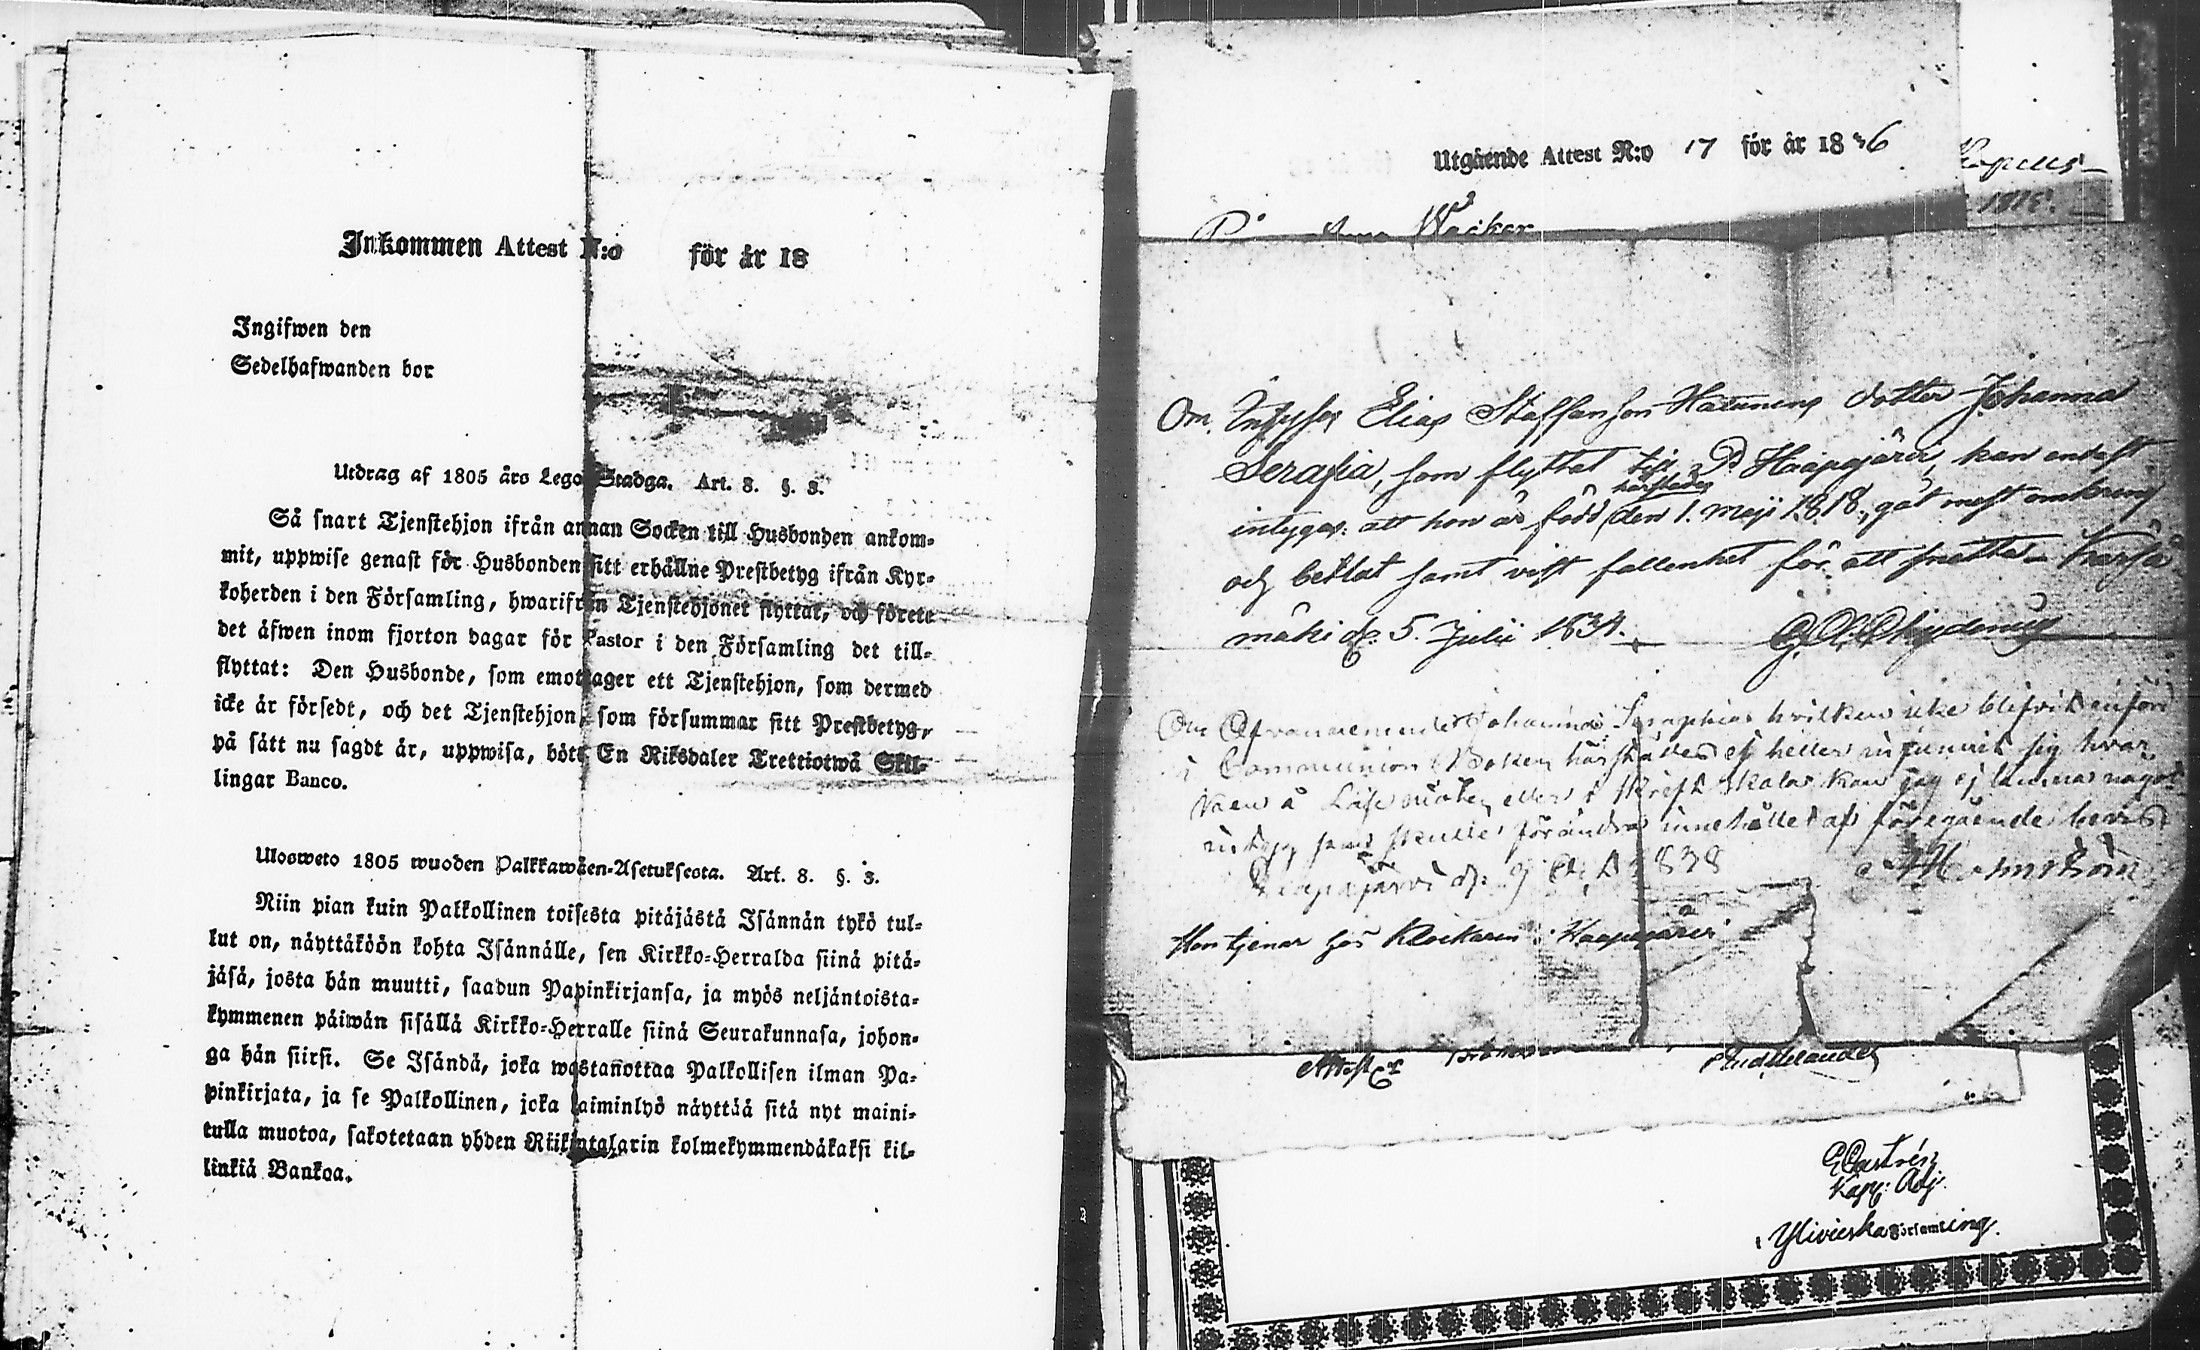 Inkommen Attest N:o för år 18
Ingifwen den
Sedelhafwanden bor
Utdrag af 1805 års Lego-Stadga. Art. 8. §. 3.
Så snart Tjenstehjon ifrån annan Socken till Husbonden ankom-
mit, uppwise genast för Husbonden sitt erhållne Prestbetyg ifrån Kyr-
koherden i den Församling, hwarifrån Tjenstehjonet flyttat, och förete
det äfwen inom fjorton dagar för Pastor i den Församling det till-
flyttat: Den Husbonde, som emottager ett Tjenstehjon, som dermed
icke är försedt, och det Tjenstehjon, som försummar sitt Prestbetyg,
på sätt nu sagdt är, uppwisa, böte En Riksdaler Trettiotwå Skil-
lingar Banco.
Ulosweto 1805 wuoden Palkkawäen-Asetuksesta. Art. 8. §. 3.
Niin pian kuin Palkollinen toisesta pitäjästä Isännän tykö tul-
lut on, näyttäköön kohta Isännälle, sen Kirkko-Herralda siinä pitä-
jäsä, josta hän muutti, saadun Papinkirjansa, ja myös neljäntoista-
kymmenen päiwän sisällä Kirkko-Herralle siinä Seurakunnasa, johon-
ga hän siirsi. Se Isändä, joka wastanottaa Palkollisen ilman Pa-
pinkirjata, ja se Palkollinen, joka laiminlyö näyttää sitä nyt maini-
tulla muotoa, sakotetaan yhden Riikintalarin kolmekymmendäkaksi kil-
linkiä Bankoa.
Utgående Attest N:o 17 för år 18 46
Om Elias Staffansson dotter Johanna
Serafia, som flyttat till Haapajärvi, kan endast
härstädes
intygas: att hon är född den 1. maji 1818, gåt mest omkring
och betlat samt vist fallenhet för att snatta. Kärsä
mäki d. 5. Julii 1834. Chydenius
Om Johanna Seraphia hvilken icke blifvit införd
i Communion Boken härstädes ej heller infunnit sig hvar
ken å Läse möten eller i Skrift skolor kan jag ej lemna något
intyg som skulle förändra innehållet af föregående bevis.
Haapajärvi d. 9 1838
Hon tjenar hos Klockaren i Haapajärvi
Attest
Castrén
Kapp. Adj.
i Ylivieska Församling.